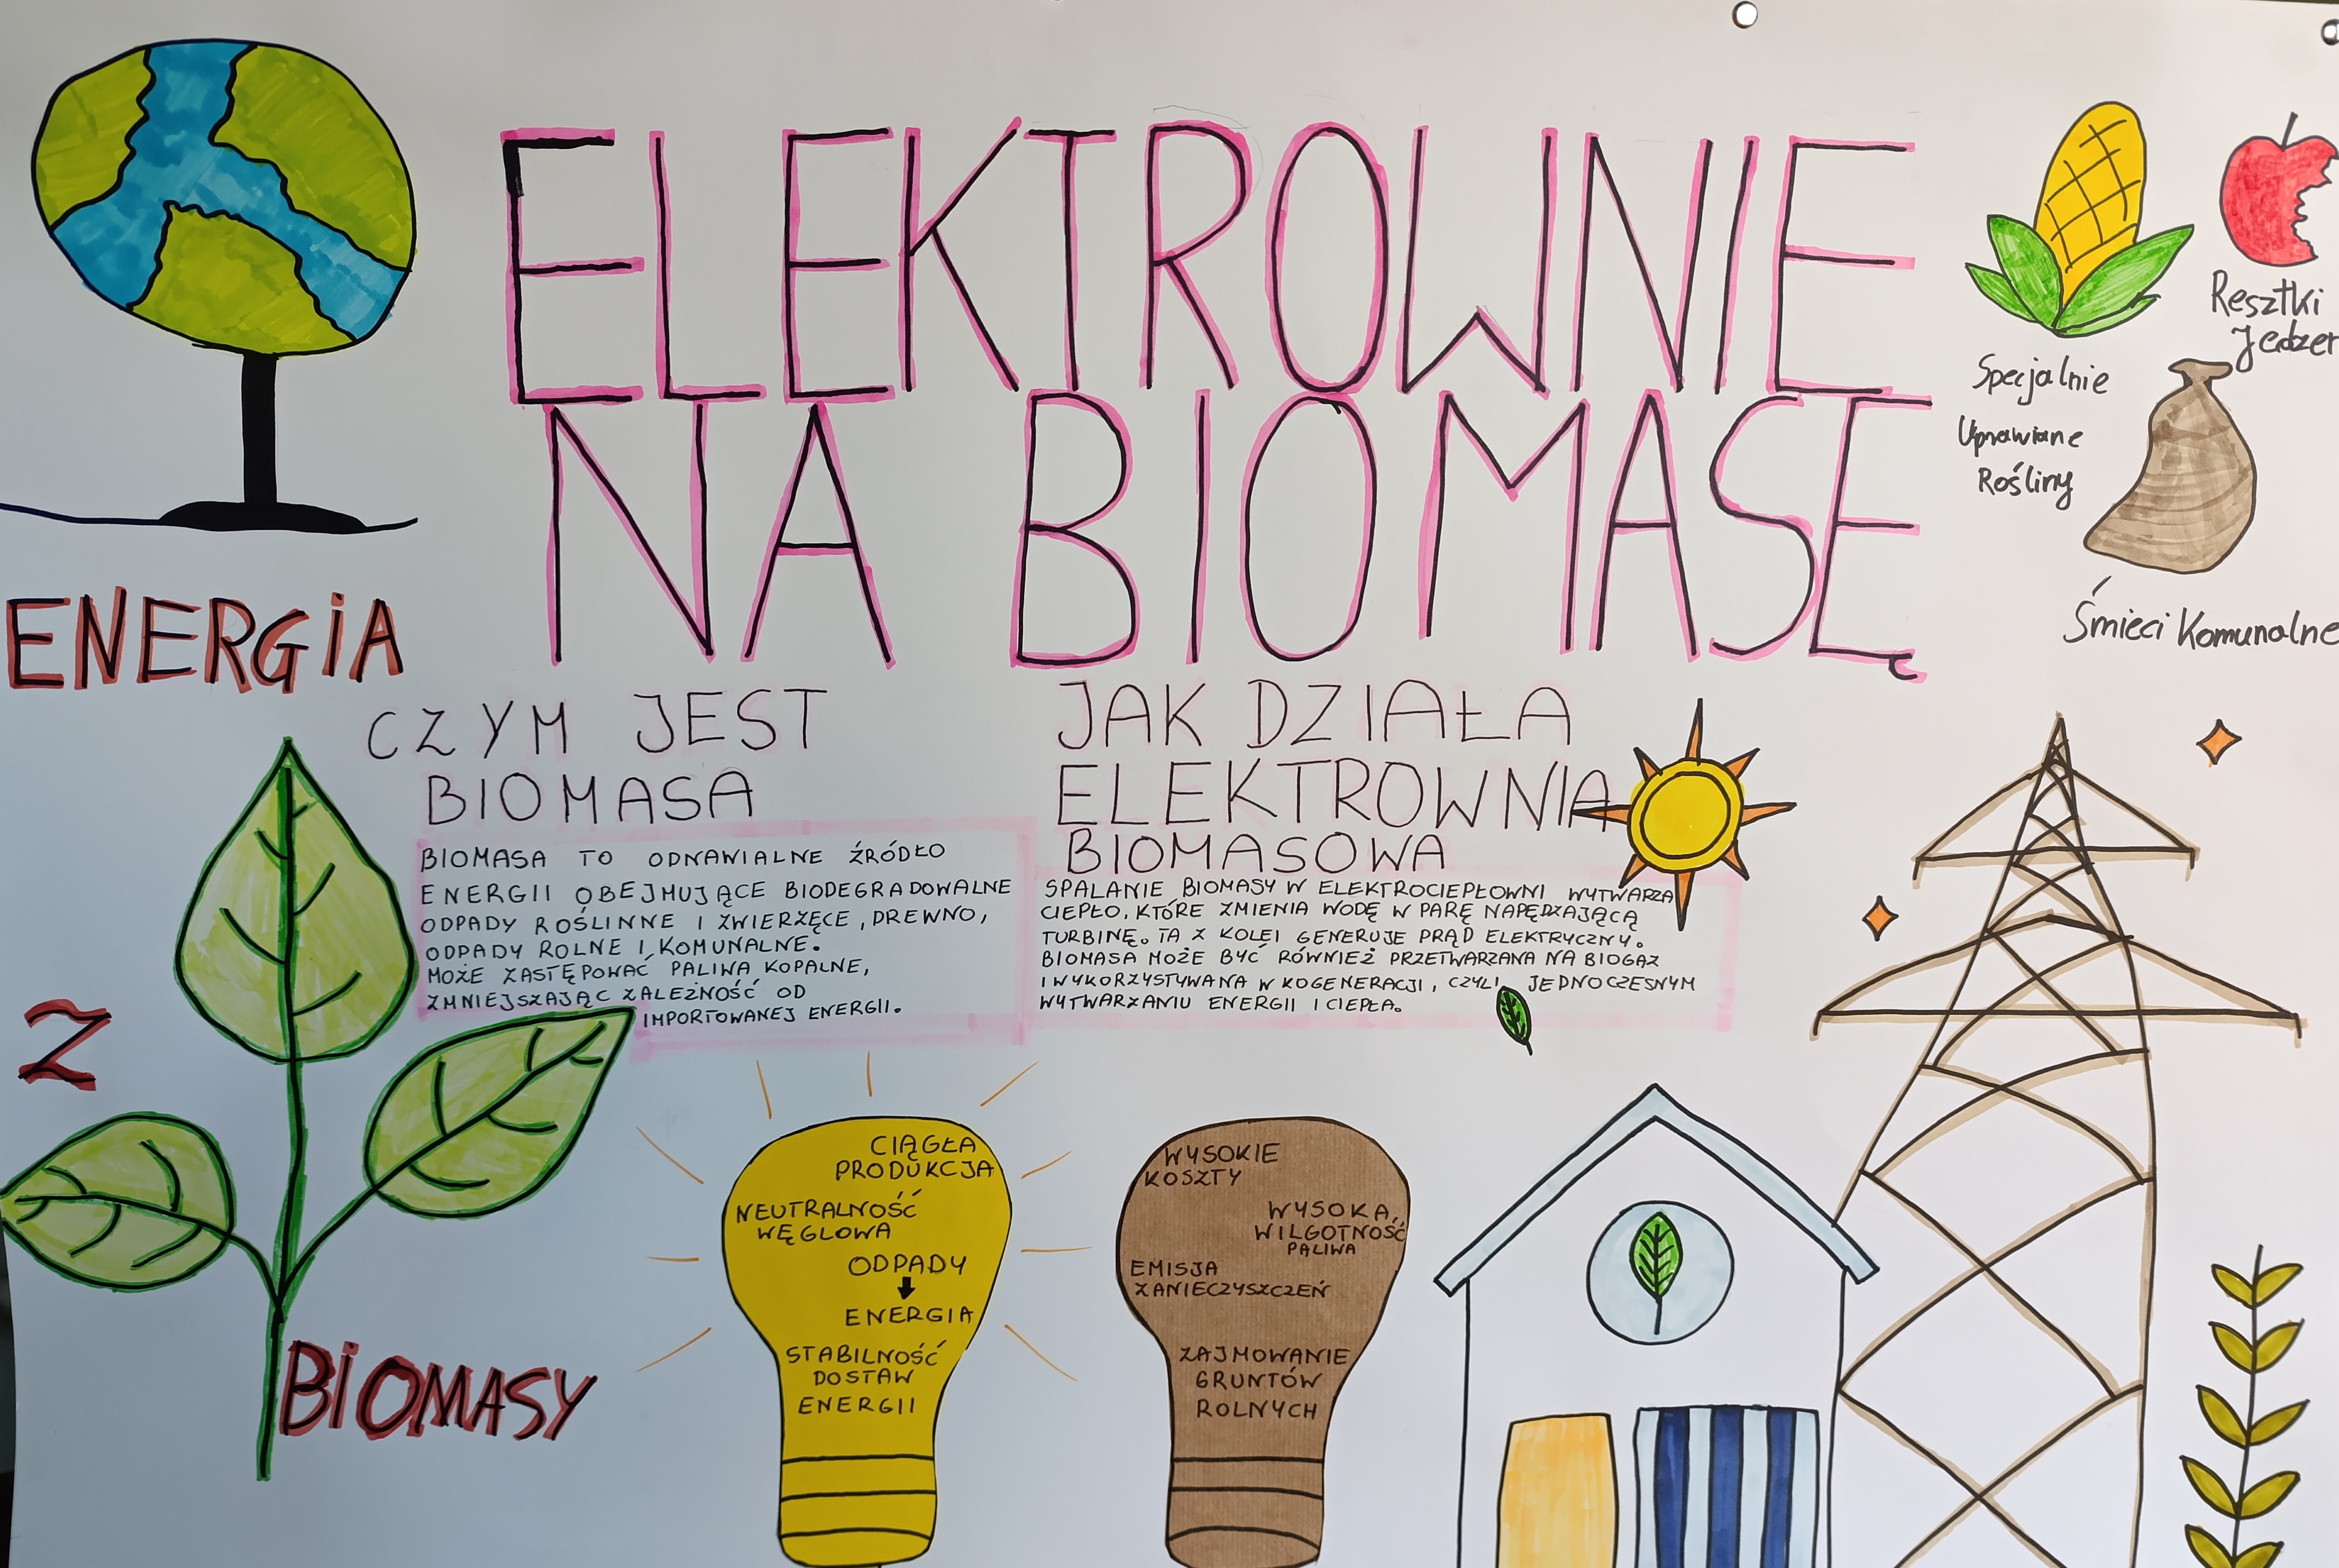 ELEKTROWNIE
NA BIOMASĘ
Resztki
Jedzen
Specjalnie
Uprawiane
Rośliny
Śmieci Komunalne
ENERGIA
Z
BIOMASY
CZYM JEST
BIOMASA
BIOMASA TO ODNAWIALNE ŹRÓDŁO
ENERGII OBEJMUJĄCE BIODEGRADOWALNE
ODPADY ROŚLINNE I ZWIERZĘCE, DREWNO,
ODPADY ROLNE I KOMUNALNE.
MOŻE ZASTĘPOWAĆ PALIWA KOPALNE,
ZMNIEJSZAJĄC ZALEŻNOŚĆ OD
IMPORTOWANEJ ENERGII.
JAK DZIAŁA
ELEKTROWNIA
BIOMASOWA
SPALANIE BIOMASY W ELEKTROCIEPŁOWNI WYTWARZA
CIEPŁO, KTÓRE ZMIENIA WODĘ W PARĘ NAPĘDZAJĄCĄ
TURBINĘ. TA Z KOLEI GENERUJE PRĄD ELEKTRYCZNY.
BIOMASA MOŻE BYĆ RÓWNIEŻ PRZETWARZANA NA BIOGAZ
I WYKORZYSTYWANA W KOGENERACJI, CZYLI JEDNOCZESNYM
WYTWARZANIU ENERGII I CIEPŁA.
CIĄGŁA
PRODUKCJA
NEUTRALNOŚĆ
WĘGLOWA
ODPADY
ENERGIA
STABILNOŚĆ
DOSTAW
ENERGII
WYSOKIE
KOSZTY
WYSOKA
WILGOTNOŚĆ
PALIWA
EMISJA
ZANIECZYSZCZEŃ
ZAJMOWANIE
GRUNTÓW
ROLNYCH